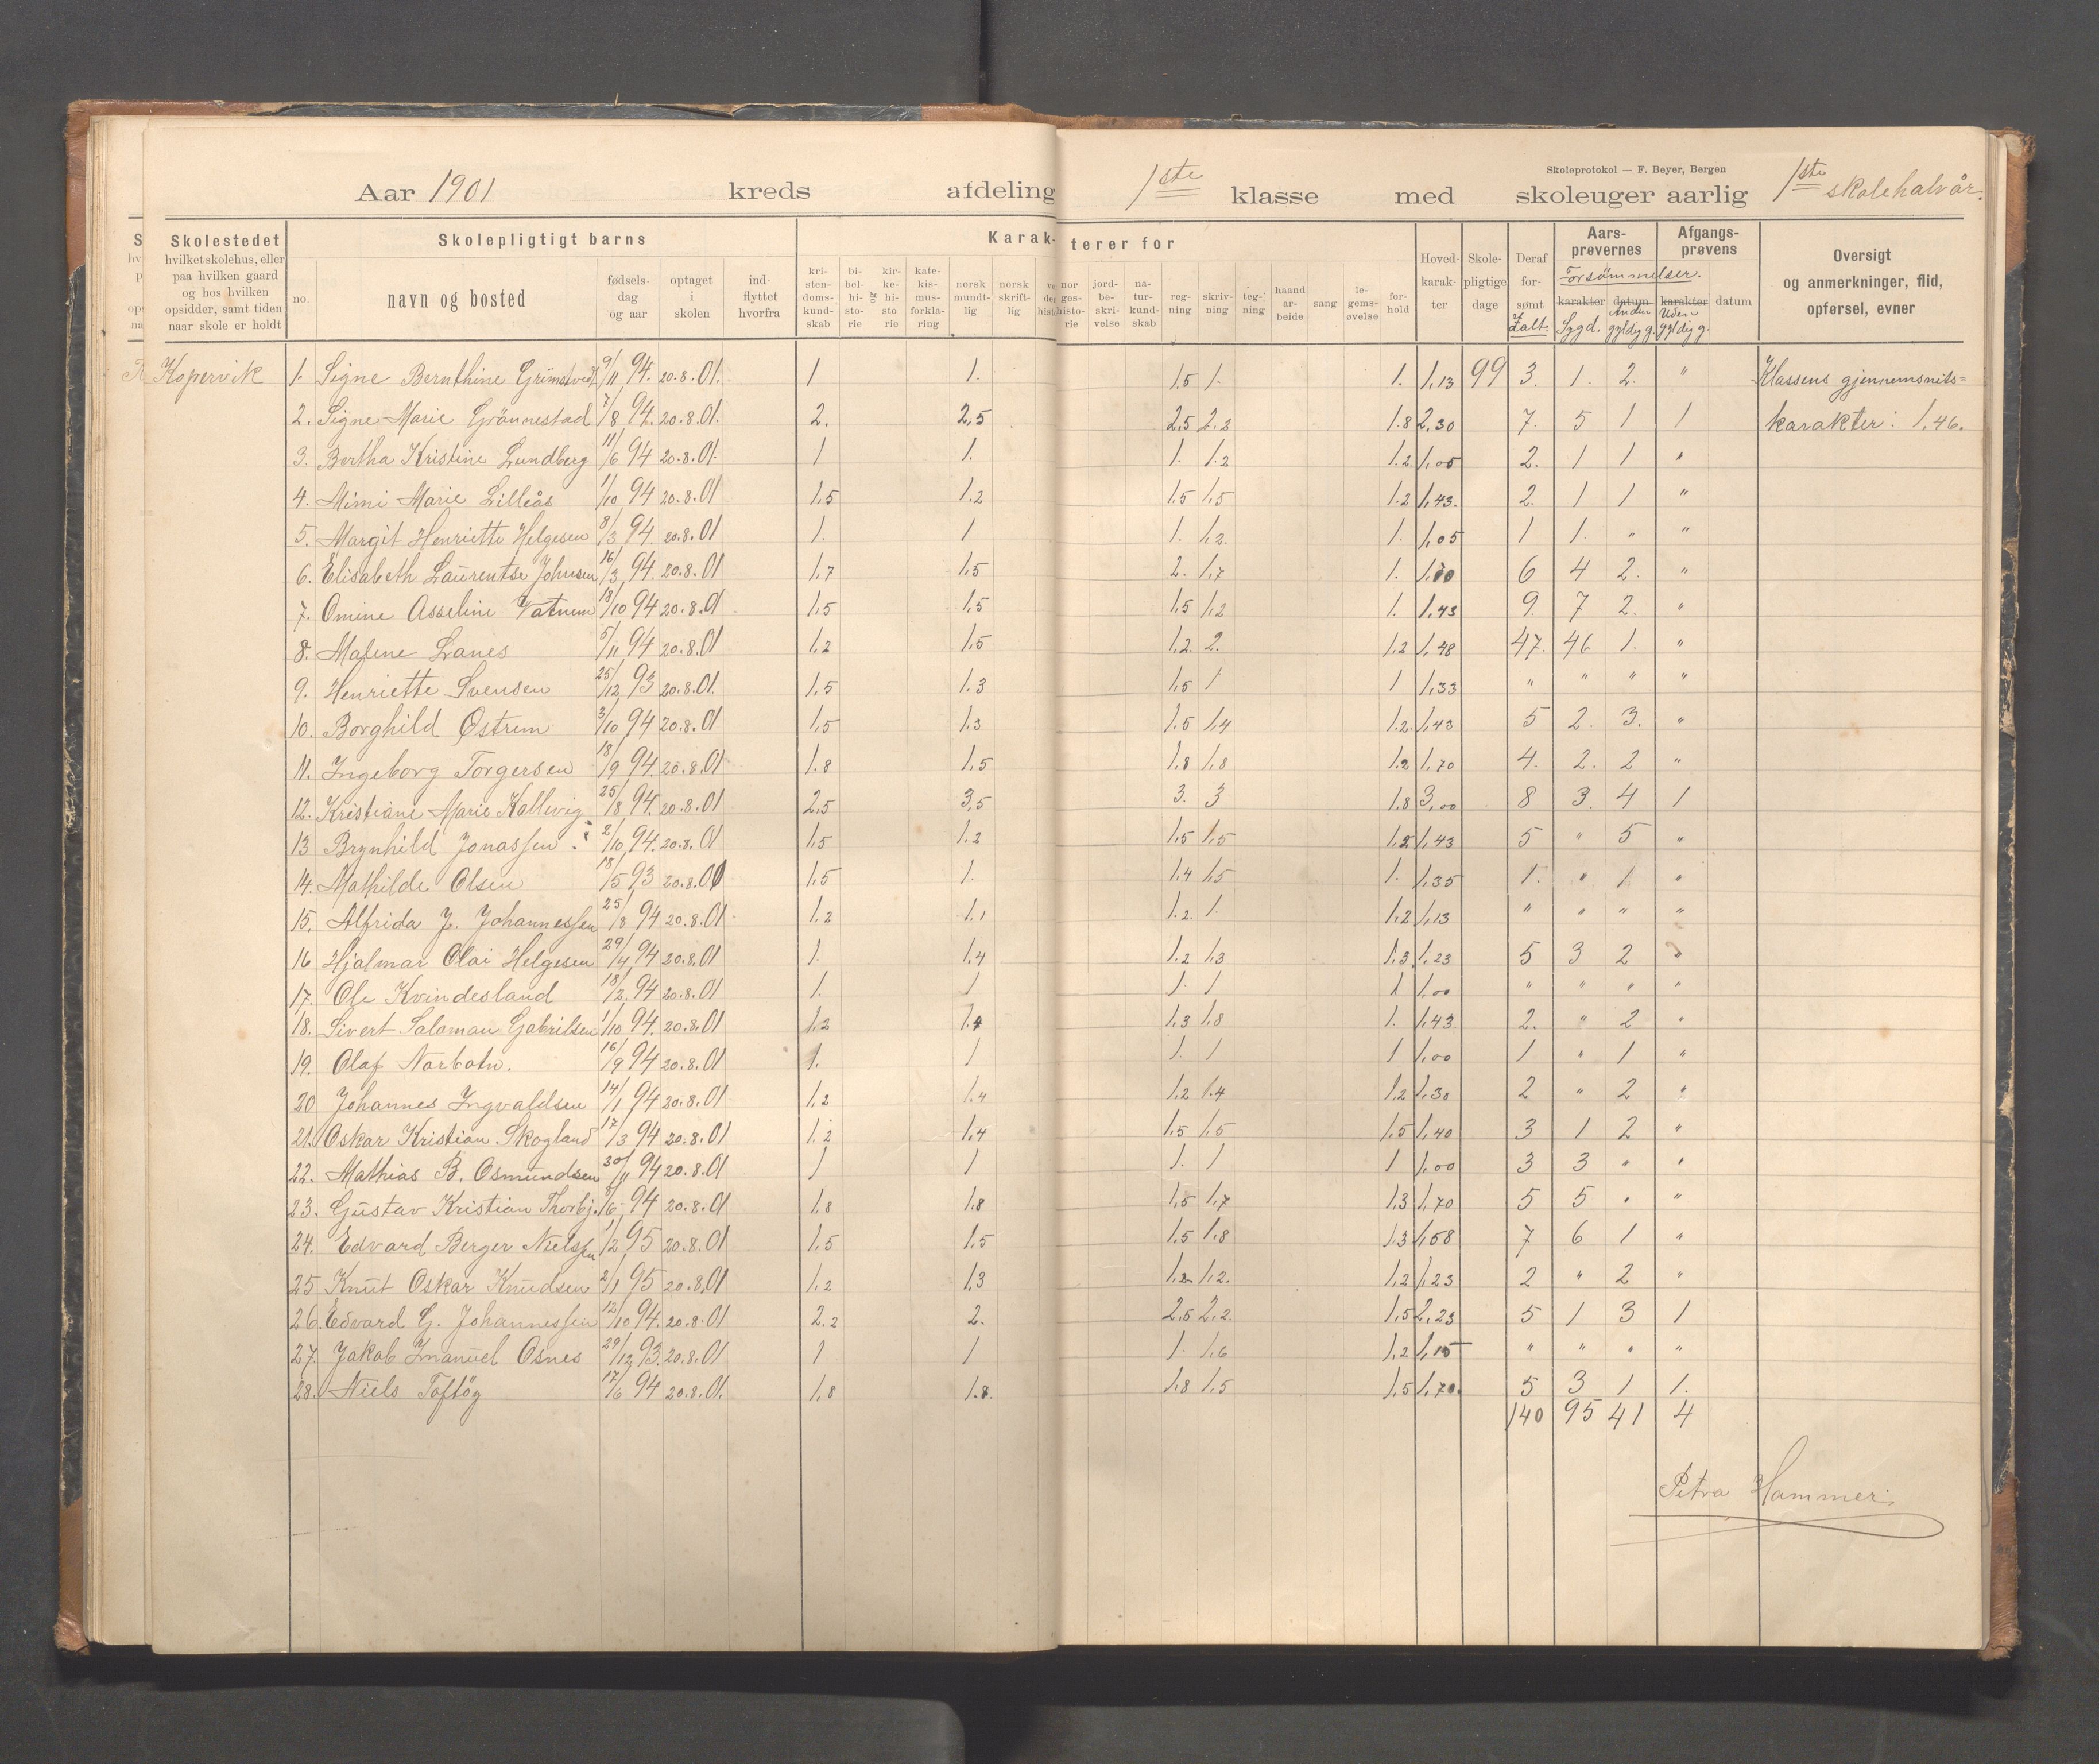 Skoleprotokol — F. Beyer, Bergen
Aar 1901 kreds afdeling 1ste klasse med skoleuger aarlig 1ste skolehalvår.
Skolestedet hvilket skolehus, eller paa hvilken gaard og hos hvilken opsidder, samt tiden naar skole er holdt
Skolepligtigt barns
no. navn og bosted fødsels-dag og aar optaget i skolen ind-flyttet hvorfra
Karak-terer for
kri-sten-doms-kund-skab bi-bel-hi-sto-rie og kir-ke-hi-sto-rie kate-kis-mus-forkla-ring norsk mundt-lig norsk skrift-lig nor-ges-histo-rie jord-be-skri-velse na-tur-kund-skab reg-ning skriv-ning teg-ning haand ar-beide sang le-gems-øvelse for-hold
Hoved-karak-ter Skole-pligtige dage Deraf for-sømt Ialt.
Aars-prøvernes Afgangs-prøvens
Forsömmelser.
karakter datum karakter datum
Sygd. Anden gyldig g. Uden gyldig g.
Oversigt og anmerkninger, flid, opførsel, evner
Kopervik 1. Signe Bernthine Grimstvedt 9/11 94. 20.8.01. 1 1. 1.5 1. 1. 1,13 99 3. 1. 2. " Klassens gjennemsnits=
2. Signe Marie Grönnestad 7/8 94. 20.8.01. 2. 2,5 2,5 2.2 1.8 2,30 7. 5 1 1 karakter: 1,46.
3. Bertha Kristine Lundberg 11/6 94 20.8.01. 1 1. 1. 1.2 1.2 1,05 2. 1 1 "
4. Mimi Marie Lilleås 1/10 94 20.8.01 1,5 1.2 1.5 1,5 1.2 1,43. 2. 1 1 "
5. Margit Henriette Helgesen 8/3 94. 20.8.01 1. 1 1. 1,2. 1. 1,05 1 1. " "
6. Elisabeth Laurentse Johnsen 16/3 94. 20.8.01 1,7 1,5 2. 1,7 1. 6 4 2. "
7. Omine Asseline Vatnem 18/10 94 20.8.01 1,5 1,5 1,5 1,2 1. 1,43 9. 7 2. "
8. Malene Lanes 5/11 94 20.8.01 1,2 1,5 1,2. 2. 1,2 1,48 47. 46 1. "
9. Henriette Svensen 25/12 93 20.8.01. 1,5 1.3 1,5 1 1 1,33 " " " "
10. Borghild Østrem 3/10 94 20.8.01 1,5 1,3 1.5 1,4 1.2. 1,43 5 2. 3. "
11. Ingeborg Torgersen 18/9 94. 20.8.01 1.8 1,5 1,8 1,8 1.2 1,70 4. 2. 2 "
12. Kristiane Marie Kallevig 25/8 94. 20.8.01 2,5 3,5 3. 3 1,8 3,00 8 3. 4 1
13 Brynhild Jonassen 2/10 94. 20.8.01 1,5 1.2 1,5 1,5 1,2 1,43 5 " 5 "
14. Mathilde Olsen 18/5 93 20.8.01 1,5 1. 1.4 1,5 1. 1,35 1. " 1 "
15. Alfrida J. Johannessen 25/8 94 20.8.01 1.2 1.1 1.2. 1. 1,2 1,13 " " " "
16 Hjalmar Olai Helgesen 29/4 94 20.8.01 1. 1.4 1.2 1,3 1.3 1,23 5 3 2 "
17. Ole Kvindesland 18/2. 94 20.8.01 1. 1 1. 1 1 1,00 " " " "
18. Sivert Salomon Gabrilsen 1/10 94. 20.8.01 1,2 1,4 1.3 1,8 1. 1,43. 2. " 2 "
19. Olaf Norbotn. 16/9 94 20.8.01 1. 1 1. 1 1 1,00 1 " 1 "
20 Johannes Ingvaldsen 14/1 94 20.8.01 1,2 1.4 1.2 1.4 1.2 1,30 2 " 2 "
21. Oskar Kristian Skogland 17/3 94 20.8.01 1.2 1,4 1,5 1,5 1,5 1,40 3 1 2 "
22. Mathias B. Osmundsen 30/11 94 20.8.01 1 1 1. 1 1 1,00 3 3 " "
23. Gustav Kristian Thorbj. 94 20.8.01 1,8 1,8 1,5 1,7 1,3 1,70 5 5 " "
24. Edvard Berger Nielssen 1/2 95 20.8.01 1,5 1,5 1.5 1.8 1,3 1,58 7 6 1 "
25 Knut Oskar Knudsen 2/1 95 20.8.01 1,2 1,3 1,2 1,2. 1,2 1,23 2 " 2 "
26. Edvard G. Johannessen 12/10 94. 20.8.01 2.2 2. 2,5 2,2. 1,5 2,23 5 1 3 1
27. Jakob Imanuel Osnes 29/12 93. 20.8.01 1 1 1. 1,6 1,2 1,15 " " " "
28. Niels Toftøy 17/6 94 20.8.01. 1,8 1.8. 1,8 1,5 1,5 1,70. 5 3 1 1.
140 95 41 4
Petra Hammer.